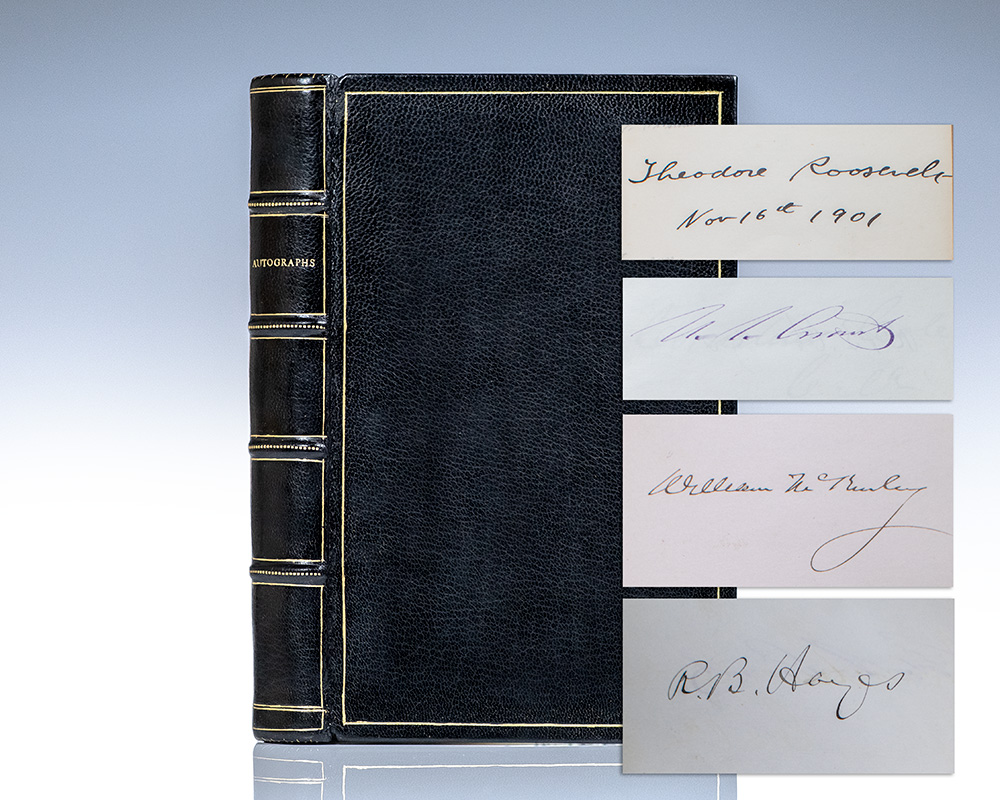 AUTOGRAPHS
Theodore Roosevelt
Nov 16th 1901
U. S. Grant
William McKinley
R. B. Hayes